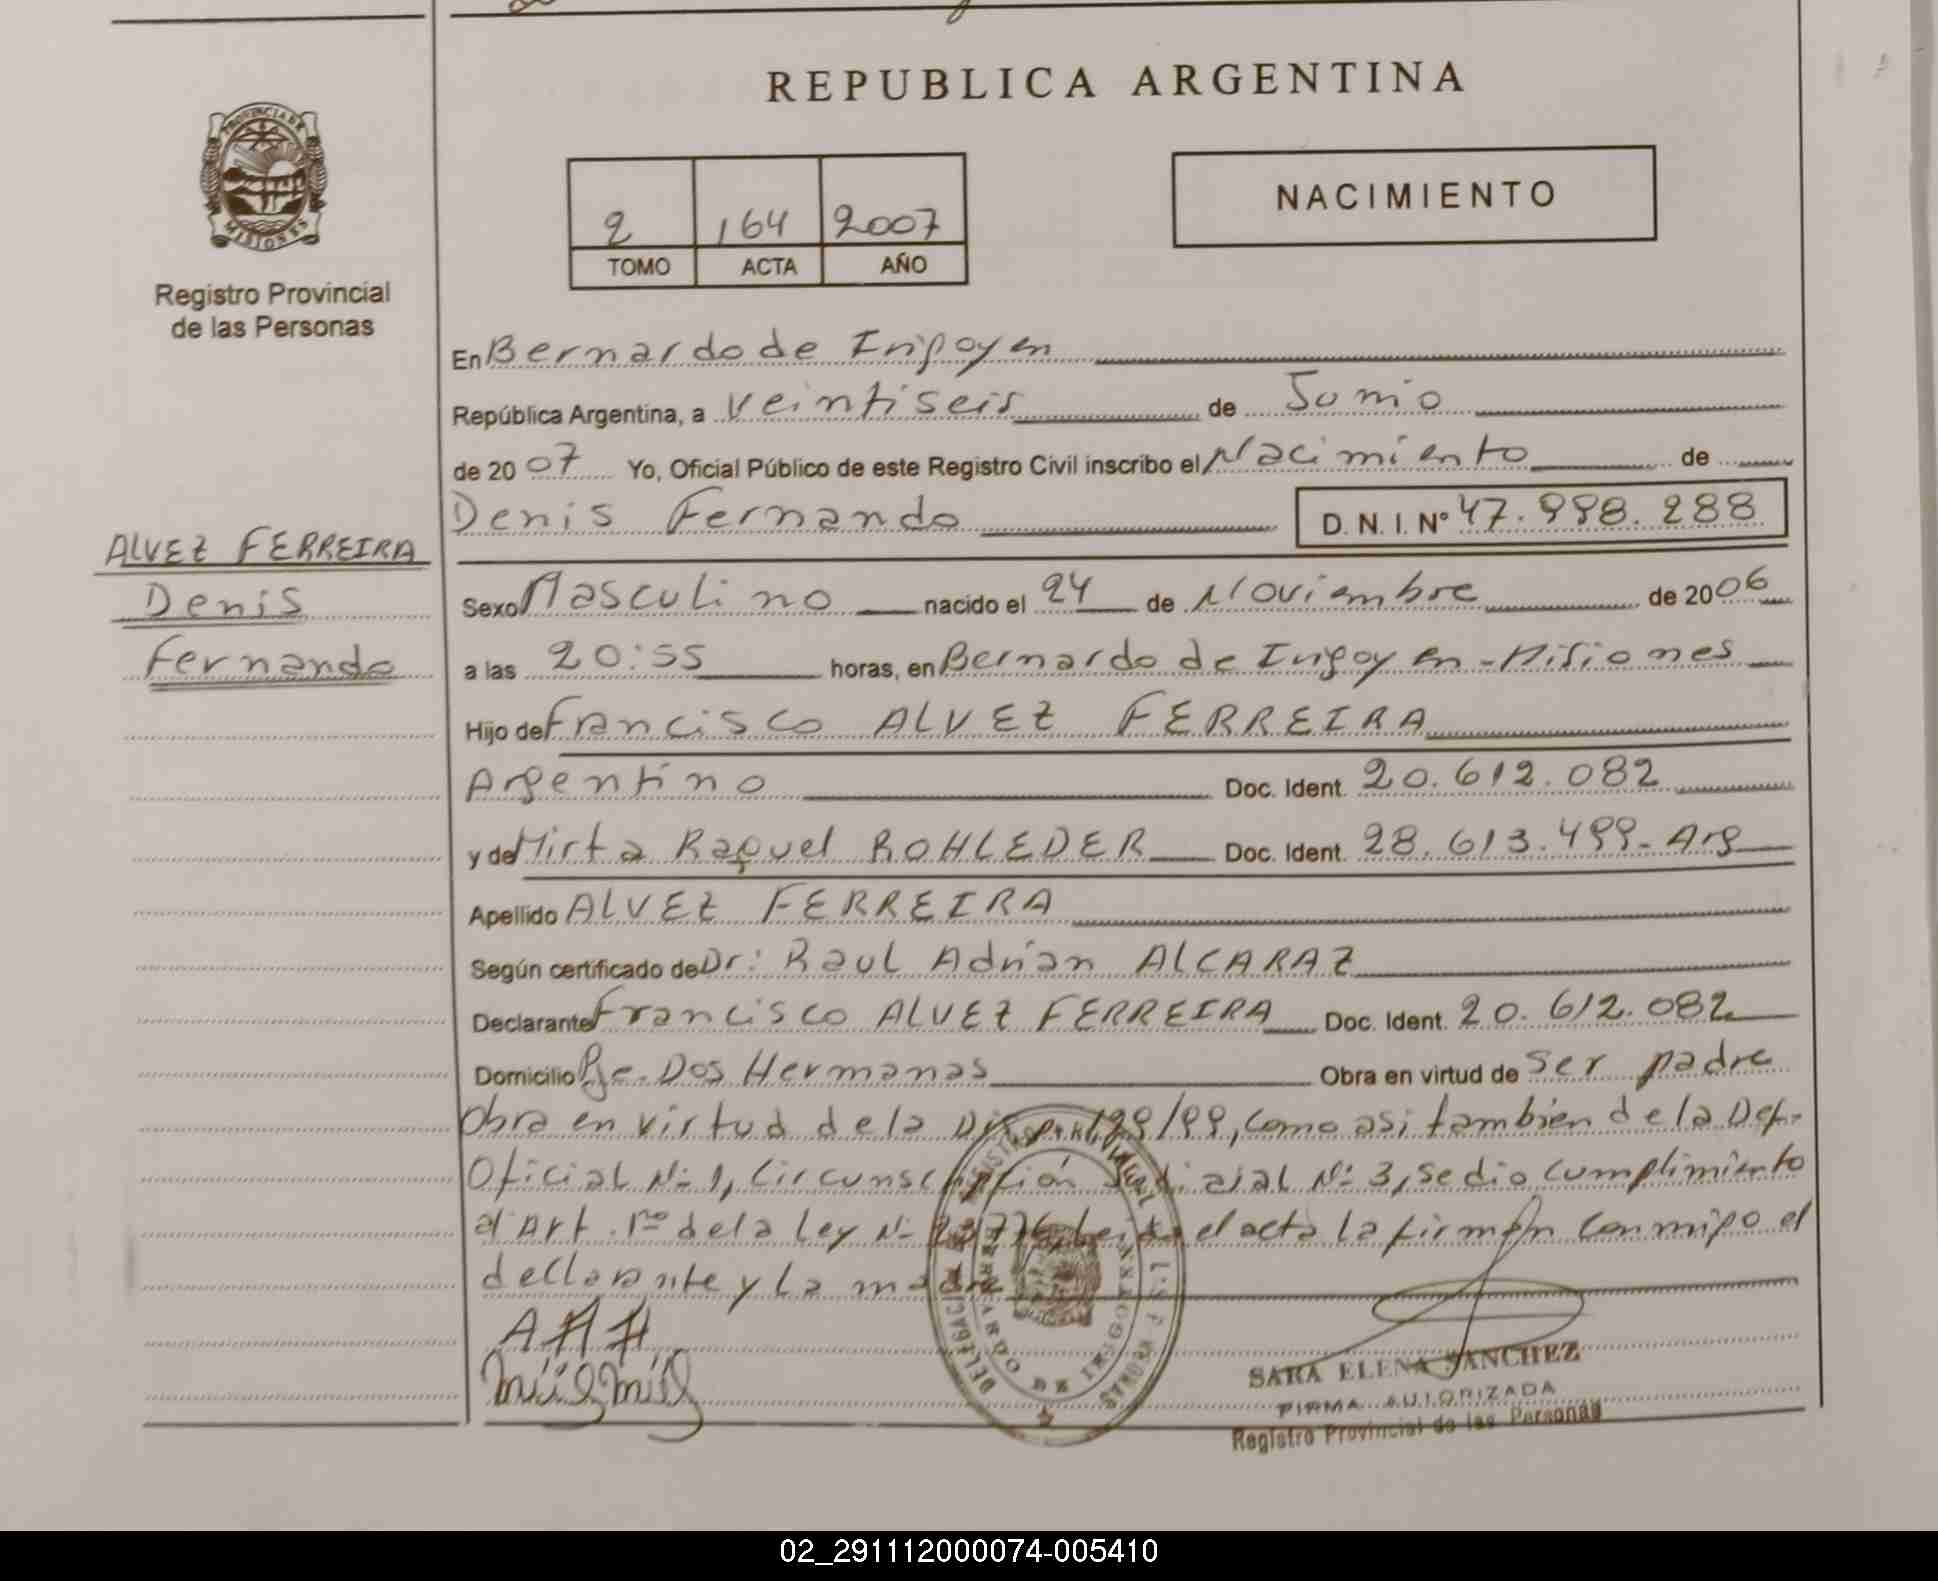 REPUBLICA ARGENTINA
PROVINCIA DE
MISIONES
Registro Provincial
de las Personas
NACIMIENTO
2 164 2007
TOMO ACTA AÑO
En Bernardo de Irigoyen
República Argentina, a veintiseis de Junio
de 2007 Yo, Oficial Público de este Registro Civil inscribo el Nacimiento de
Denis Fernando D. N. I. Nº 47.998.288
ALVEZ FERREIRA
Denis
Fernando
Sexo Masculino nacido el 24 de Noviembre de 2006
a las 20:55 horas, en Bernardo de Irigoyen - Misiones
Hijo de Francisco ALVEZ FERREIRA
Argentino Doc. Ident. 20.612.082
y de Mirta Raquel ROHLEDER Doc. Ident. 28.613.499 - Arg
Apellido ALVEZ FERREIRA
Según certificado de Dr: Raul Adrian ALCARAZ
Declarante Francisco ALVEZ FERREIRA Doc. Ident. 20.612.082
Domicilio Pje. Dos Hermanas Obra en virtud de ser padre
Obra en virtud de la /99, como asi tambien de la Def.
Oficial Nº 1, Circunscripción Judicial Nº 3, se dio cumplimiento
al Art. 1ro de la Ley Nº el acta la firman conmigo el
declarante y la madre
SARA ELENA SANCHEZ
FIRMA AUTORIZADA
Registro Provincial de las Personas
02_291112000074-005410